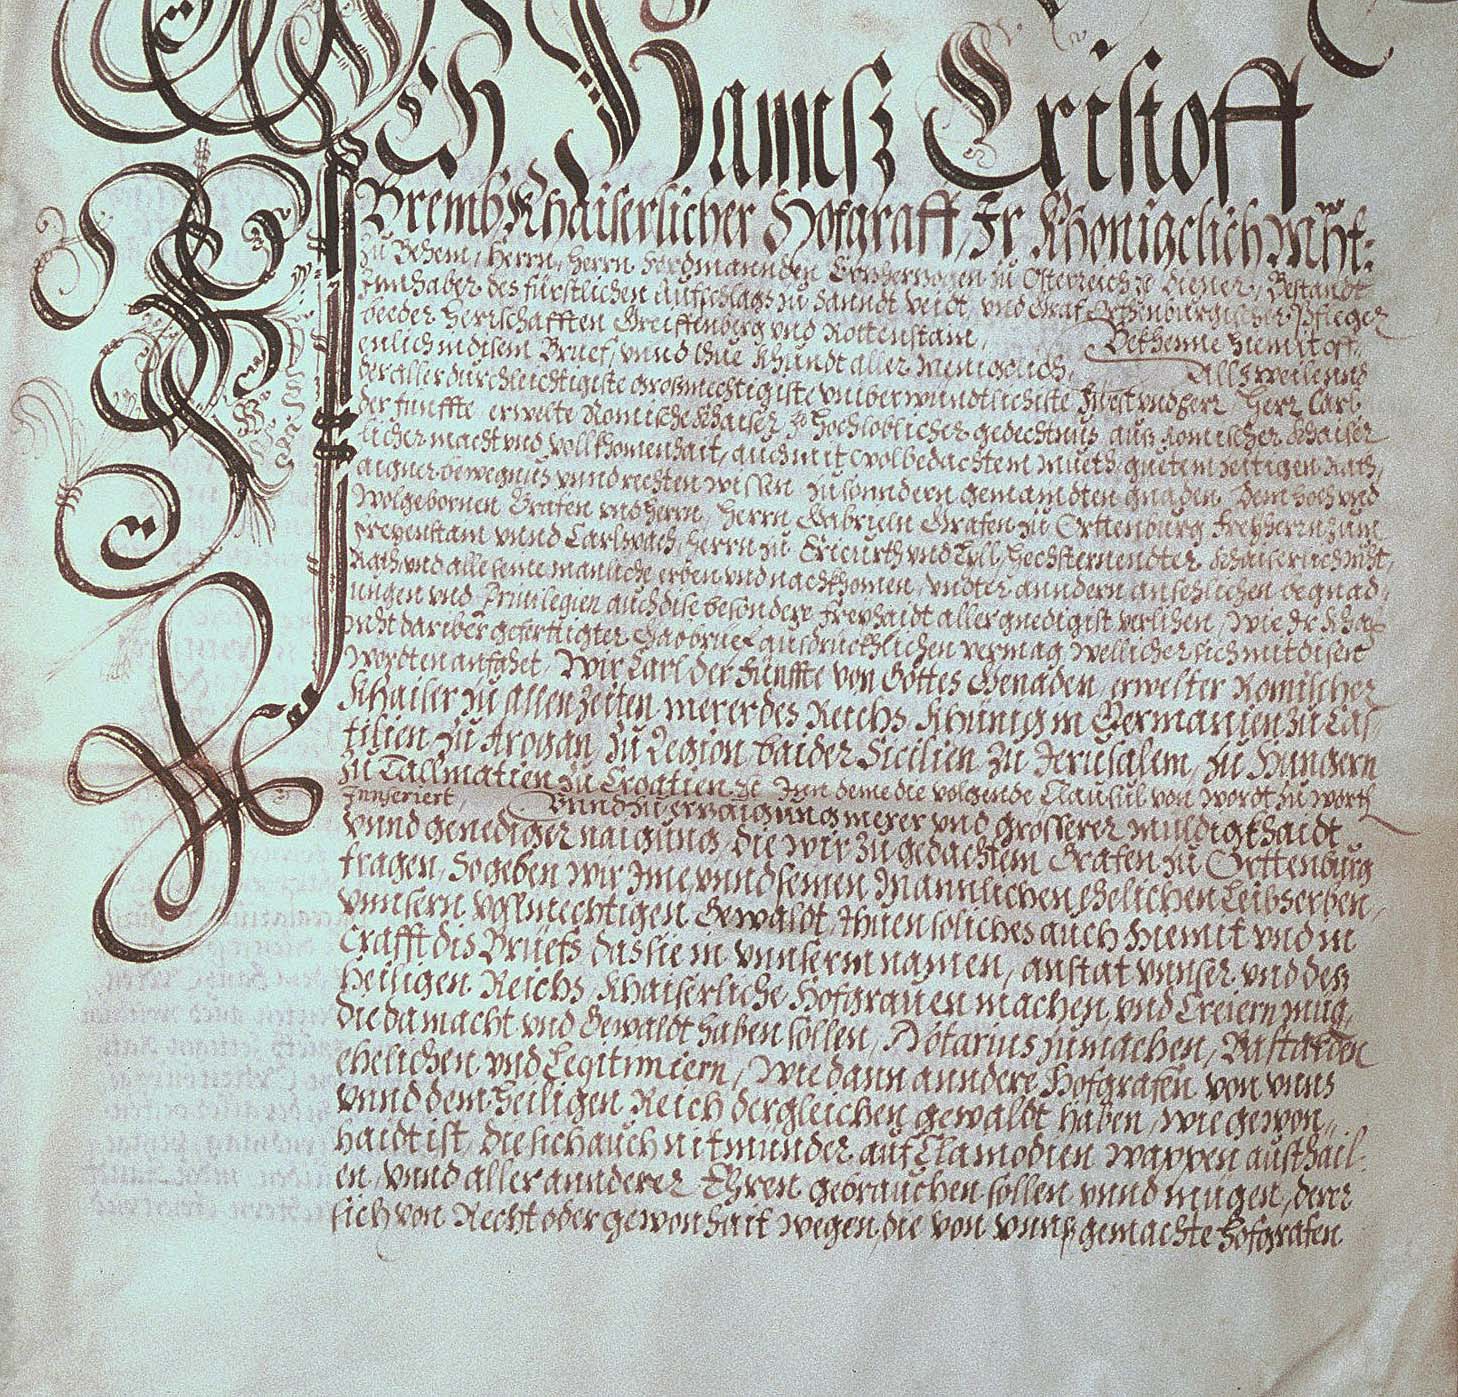 Ich Hannß Cristoff
Bremb Khaiserlicher Hofgraff, Ir Khönigclich Mht:
zu Behem, Herrn, Herrn Ferdinannden Ertzhertzogen zu Osterreich ꝛc Diener, Bestandt
Innhaber des fürstlichen Aufschlags zu Sanndt Veidt, vnd Graf Orthenburgischer Pfleger
beeder Herrschafften Greiffenberg vnd Rottenstain, Bekhenne hiemit off=
enlich in disem Brief, vnnd thue khundt aller menigclich, Alls weilennd
der aller durchleichtigiste Großmechtigiste vnüberwundtlichiste Fürst vnd Herr, Herr Carl
der funffte erwelte Romische Khaiser ꝛc Hochloblicher gedechtnus, aus Romischer Khaiser
licher macht vnd vollkhomenhait, auch mit wolbedachtem mueth, guetem zeitigen Rath,
aigner bewegnus vnnd rechten wissen, zu sonndern genaindten gnaden, Dem Hoch vnd
Wolgebornen Grafen vnd Herrn, Herrn Gabrieln Grafen zu Orttenburg Freyherrn zum
Freyenstain vnnd Carlspach, Herrn zu Erieurth vnd Lyll, Hechsternendter Khaiserlich Mht,
Rath vnd alle seine manliche erben vnd nachkhomen, vndter anndern ansehlichen begnad,
ungen vnd Priuilegien auch dise besondere Freyhaidt aller gnedigist verlihen, Wie Ir Khay
Mht dariber gefertigter Gabbrief ausdruckhlichen vermag, wellicher sich mit disen
Wordten anfahet, Wir Carl der Fünffte von Gottes Genaden, erwelter Romischer
Khaiser zu allenzeiten merer des Reichs, Khünig in Germanien zu Cas=
tilien, zu Arogan, zu Legion, baider Sicilien, zu Jerusalem, zu Hungern
zu Tallmatien zu Croatien ꝛc Inn deme die volgende Clausul von wordt zu worth
Innseriert, Vnnd zu erzaigung merer vnd grösserer mildigkhaidt
vnnd genediger naigung, die wir zu gedachtem Grafen zu Orttenburg
tragen, So geben wir Ime, vnnd seinen Mannlichen Ehelichen Leibserben,
vnnsern volmechtigen Gewaldt, thuen soliches auch hiemit vnd in
Crafft dis Briefs, das sie in vnnserm namen, anstat vnnser vnd des
Heiligen Reichs, Khaiserliche Hofgrauen machen, vnd Creiern müg,
die da macht vnd Gewaldt haben sollen, Notarius zu machen, Bastarden
ehelichen vnd Legitimiern, Wie dann anndere Hofgrafen von vnns
vnnd dem Heiligen Reich dergleichen gewaldt haben, wie gewon,,
haidt ist, die sich auch nit munder auf Clainodien Wappen austhail=
en, vnnd aller annderer Ehren gebrauchen sollen vnnd mügen, derer
sich von Recht oder gewonhait wegen, die von vnns gemachte Hofgrafen